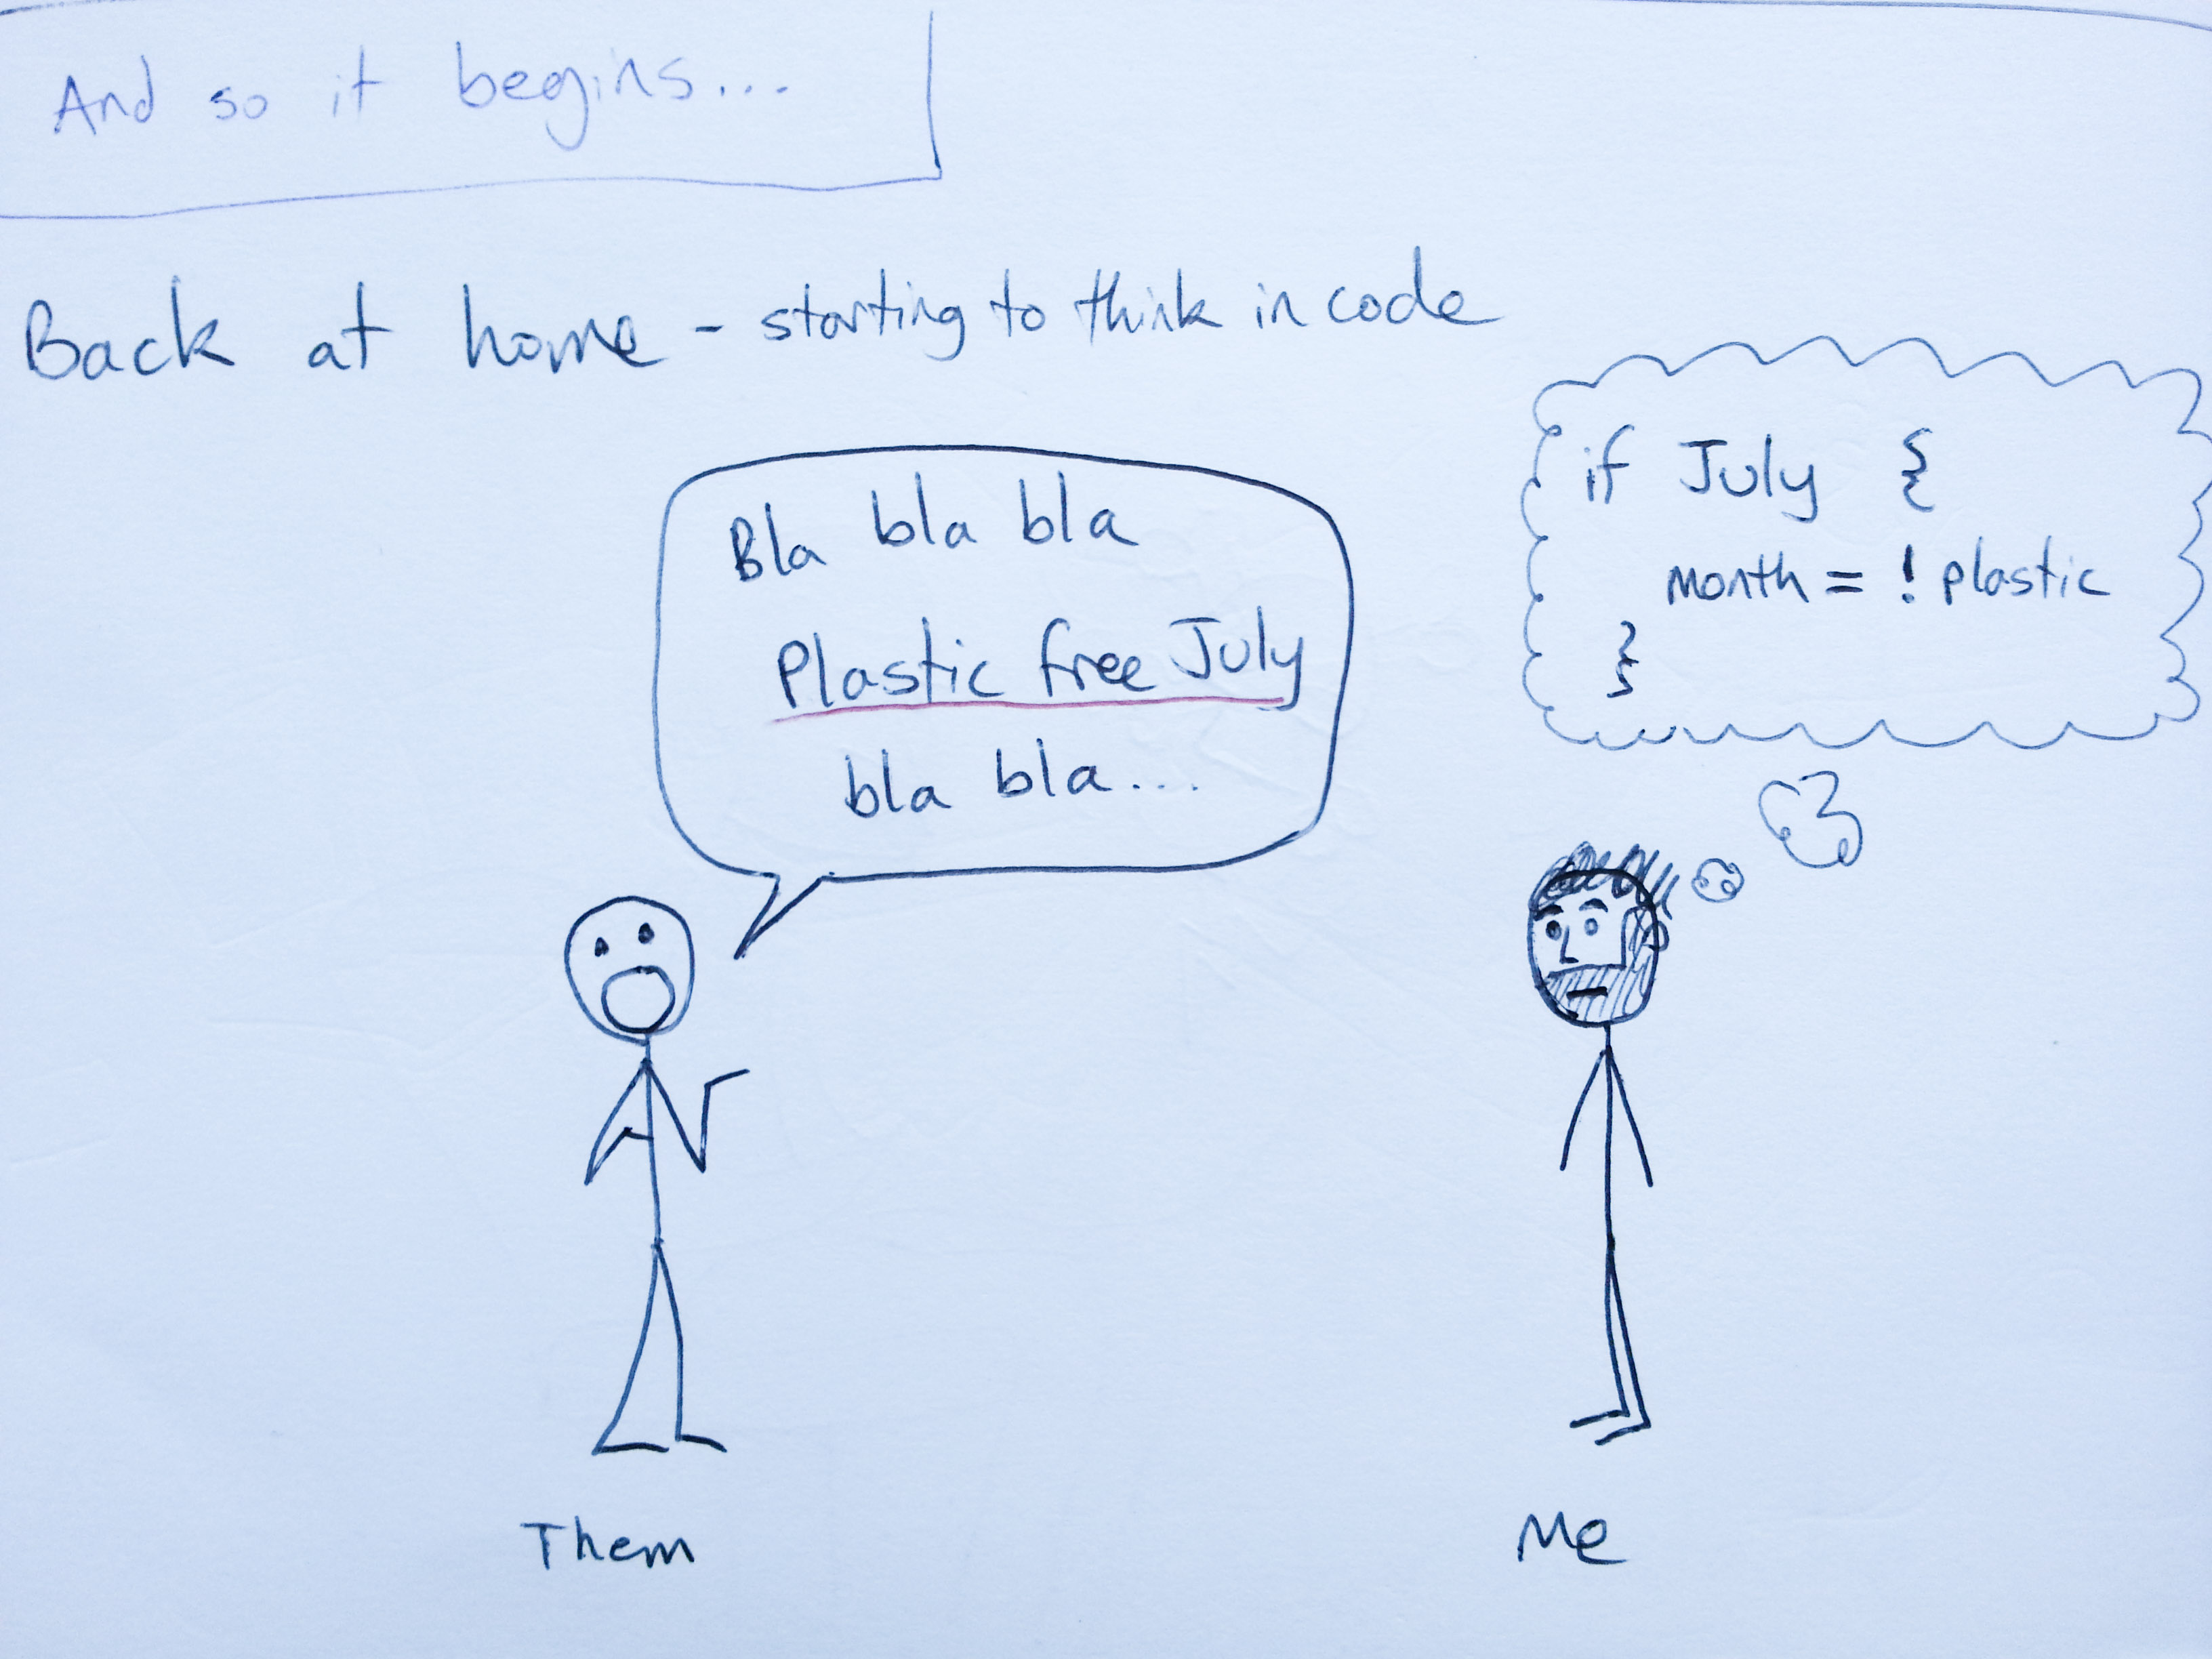 And so it begins...
Back at home - starting to think in code
Bla bla bla
Plastic free July
bla bla...
if July {
month = ! plastic
}
Them
Me